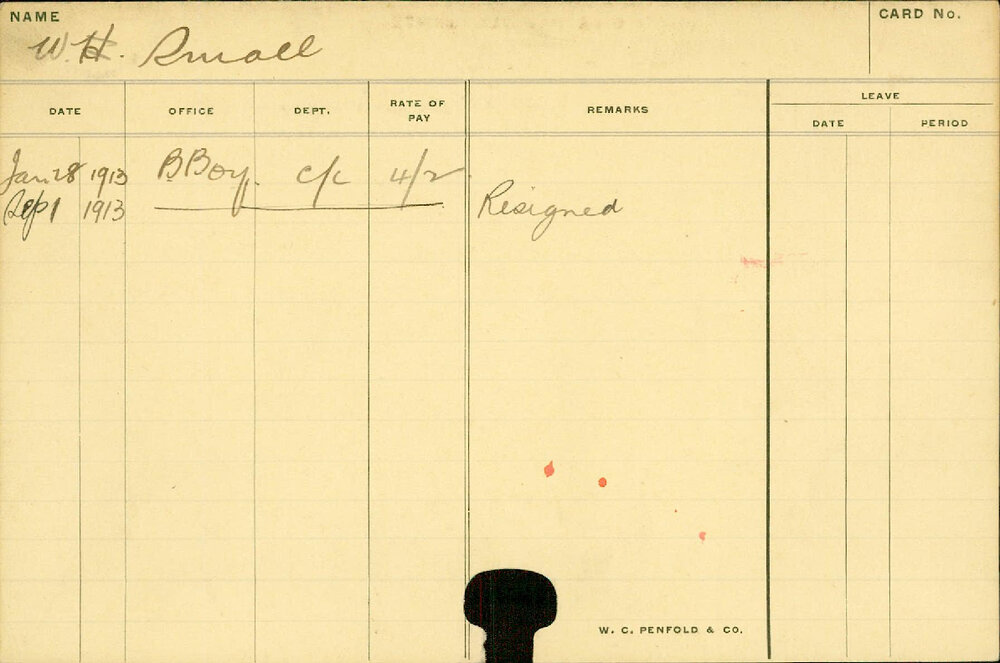 NAME
W. H. Small
CARD No.
DATE OFFICE DEPT. RATE OF PAY REMARKS LEAVE
DATE PERIOD
Jan 28 1913 B. Boy. C/C 4/2
Sep 1 1913 Resigned
W. C. PENFOLD & CO.